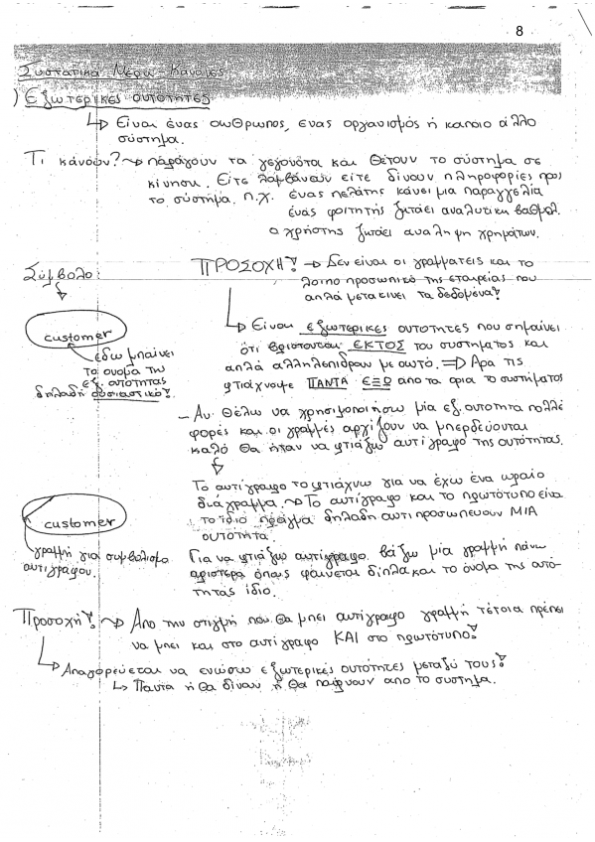 8
Συστατικά Μέρη - Κανόνες
) Εξωτερικές οντότητες
Είναι ένας άνθρωπος, ένας οργανισμός ή κάποιο άλλο
σύστημα.
Τι κάνουν? παράγουν τα γεγονότα και θέτουν το σύστημα σε
κίνηση. Είτε λαμβάνουν είτε δίνουν πληροφορίες προς
το σύστημα. π.χ. ένας πελάτης κάνει μια παραγγελία
ένας φοιτητής ζητάει αναλυτική βαθμολ.
ο χρήστης ζητάει ανάληψη χρημάτων.
Σύμβολο:
customer
εδώ μπαίνει
το όνομα της
εξ. οντότητας
δηλαδή ουσιαστικό!
ΠΡΟΣΟΧΗ! Δεν είναι οι γραμματείς και το
λοιπό προσωπικό της εταιρείας που
απλά μετακινεί τα δεδομένα!
Είναι εξωτερικές οντότητες που σημαίνει
ότι βρίσκονται ΕΚΤΟΣ του συστήματος και
απλά αλληλεπιδρούν με αυτό. => Άρα τις
φτιάχνουμε ΠΑΝΤΑ ΕΞΩ από τα όρια το συστήματος
- Αν θέλω να χρησιμοποιήσω μία εξ. οντότητα πολλέ
φορές και οι γραμμές αρχίζουν να μπερδεύονται
καλό θα ήταν να φτιάξω αντίγραφο της οντότητας.
Το αντίγραφο το φτιάχνω για να έχω ένα ωραίο
διάγραμμα. Το αντίγραφο και το πρωτότυπο είνα
το ίδιο πράγμα δηλαδή αντιπροσωπεύουν ΜΙΑ
οντότητα.
customer
γραμμή για συμβολισμό
αντιγράφου.
Για να φτιάξω αντίγραφο βάζω μία γραμμή πάνω
αριστερά όπως φαίνεται δίπλα και το όνομα της οντό-
τητας ίδιο.
Προσοχή! Από την στιγμή που θα μπει αντίγραφο γραμμή τέτοια πρέπει
να μπει και στο αντίγραφο ΚΑΙ στο πρωτότυπο!
Απαγορεύεται να ενώσω εξωτερικές οντότητες μεταξύ τους!
Πάντα ή θα δίνουν ή θα παίρνουν από το σύστημα.